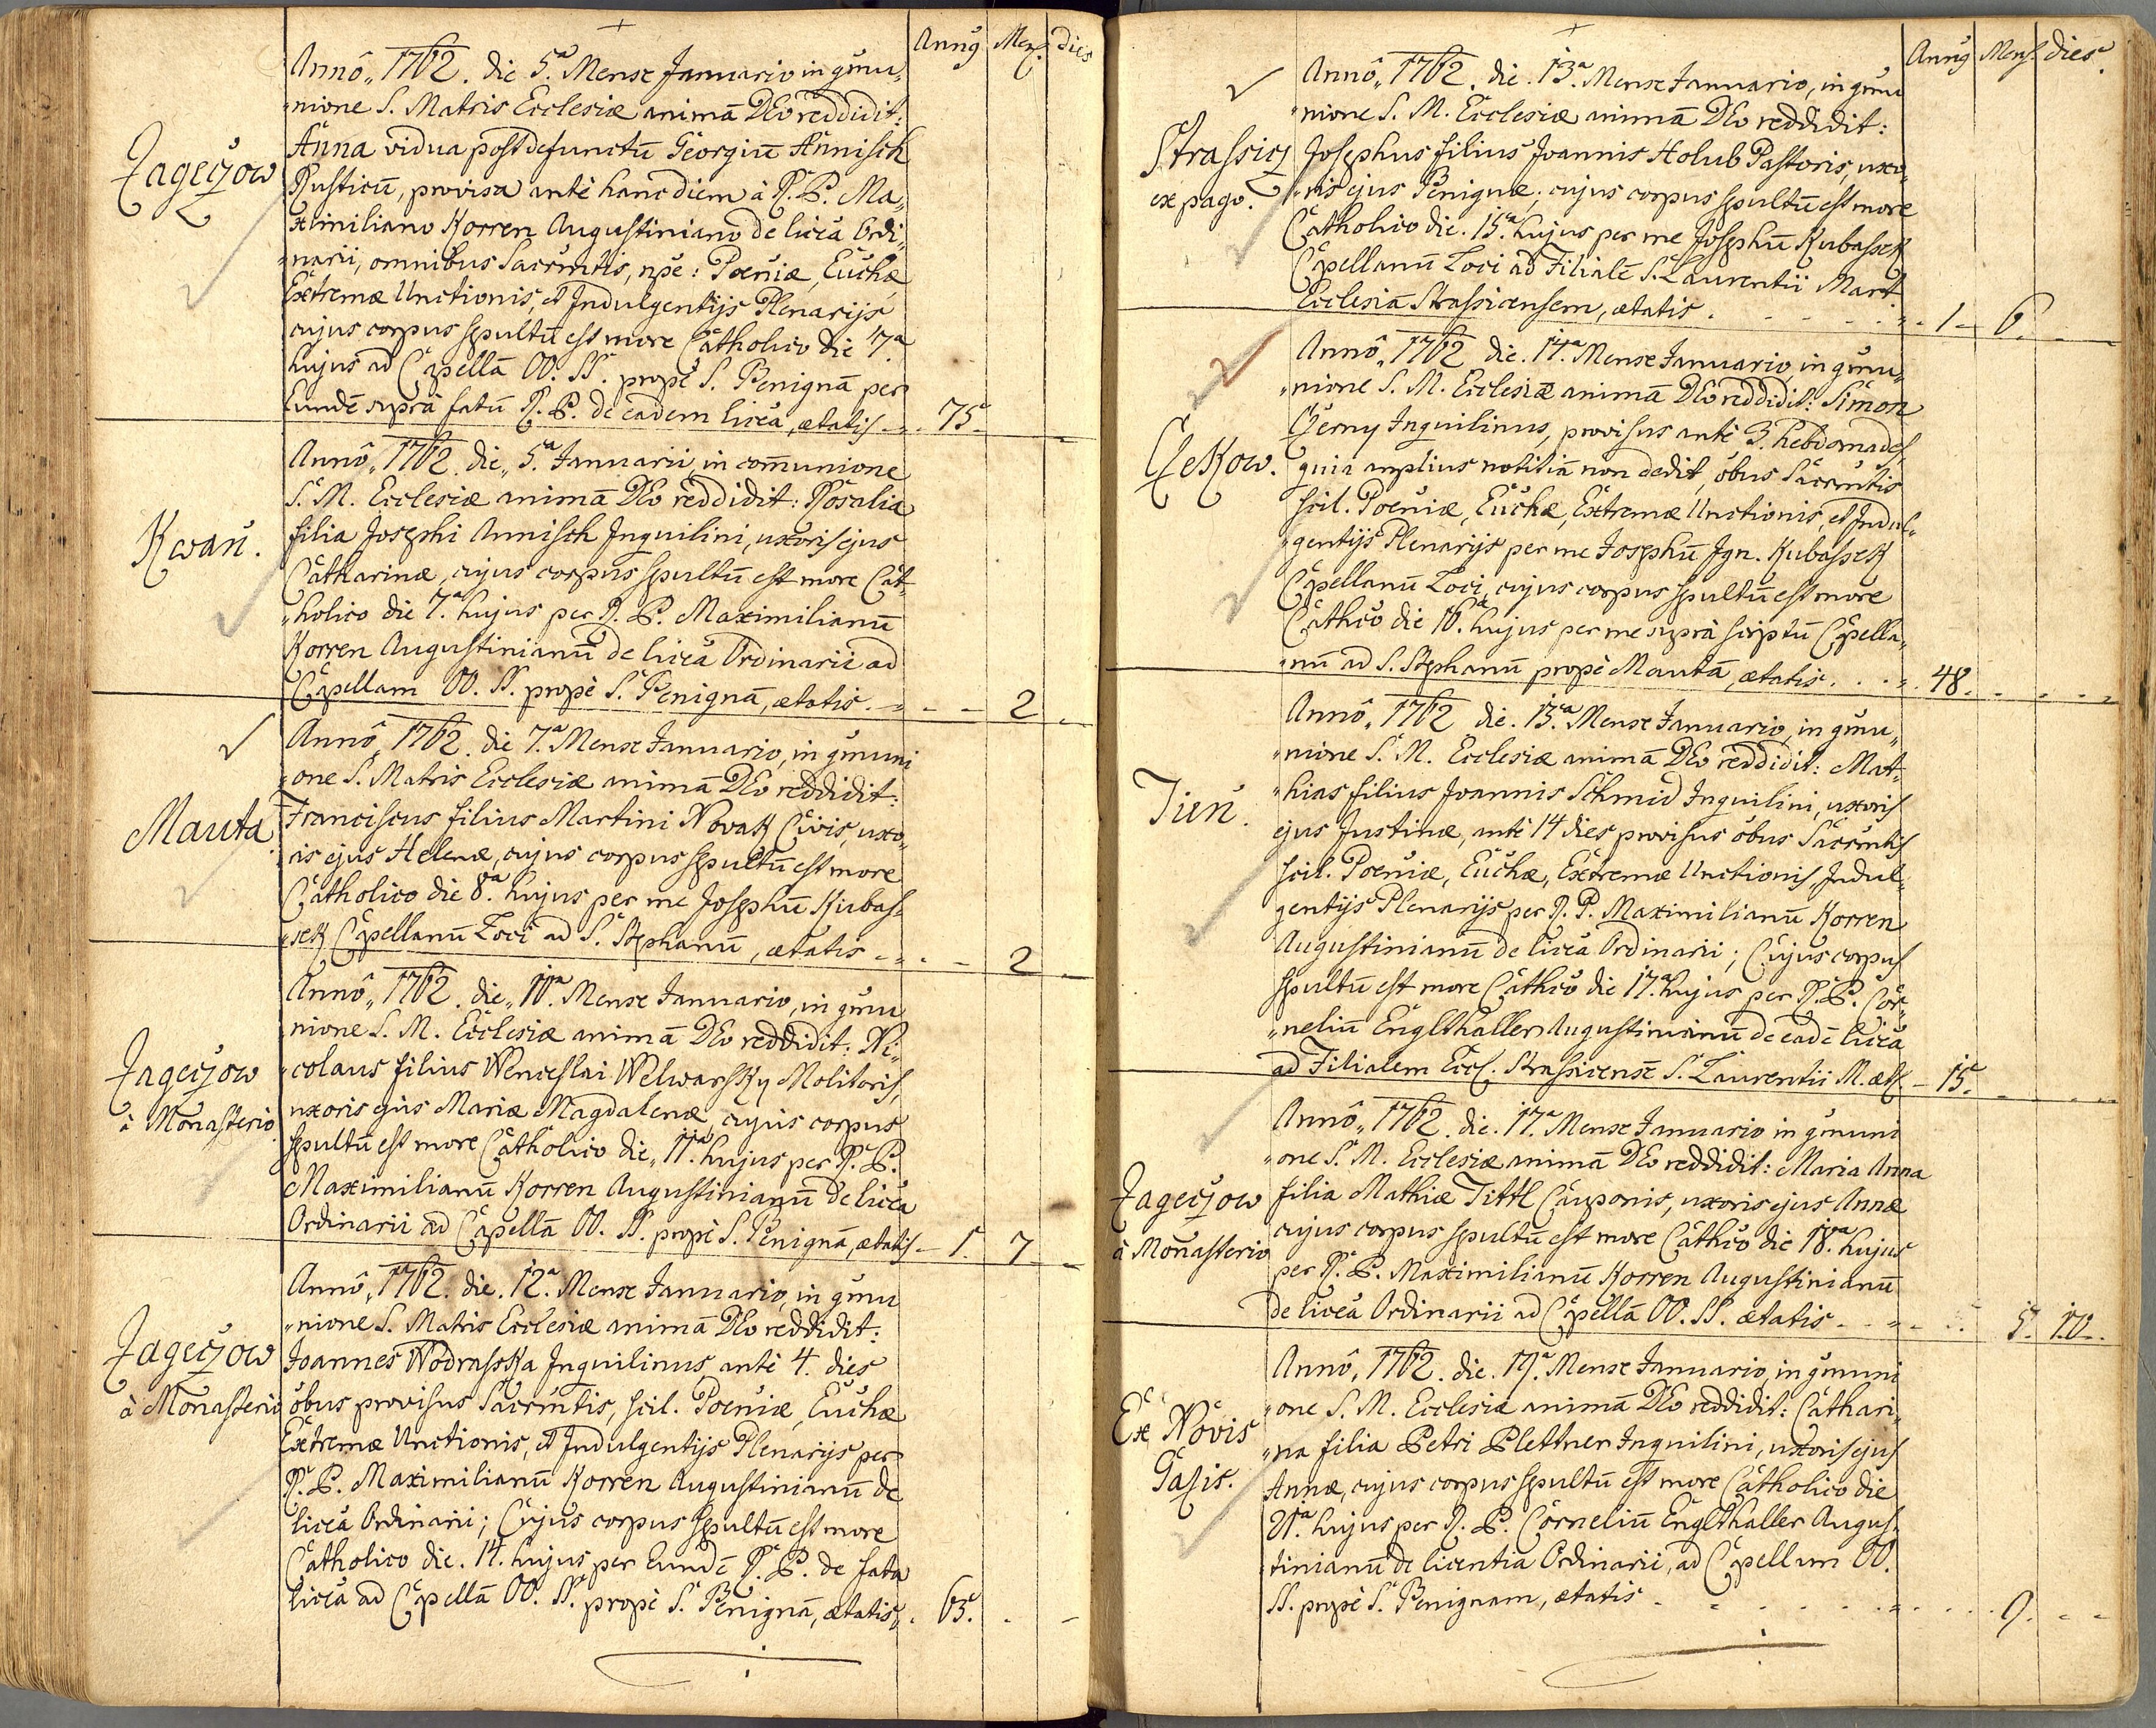 Annus Mens. dies
Annô „ 1762. die 5.ª Mense Januario in gmu„
„nione S. Matris Ecclesiæ animã DEo reddidit:
Zageczow
Anna vidua post defunctũ Georgiũ Annisch
Rusticũ, provisa antè hanc diem à R. P. Ma„
ximiliano Korren Augustiniano de liceä Ordi„
„narii, omnibus Sacrmtis, npe: Poeniæ, Euchæ
Extremæ Unctionis, et Indulgentijs Plenarijs
cujus corpus spultũ est more Catholico die 7ª
hujus ad Capellã OO. SS. propè S. Benignã per
Eundẽ suprà fatũ R. P. de eadem liceä, ætatis - 75.
Annô „ 1762. die „ 5.ª Januarii in com̃unione
S. M. Ecclesiæ animã DEo reddidit: Rosalia
Kwaň.
filia Josephi Annisch Inquilini, uxoris ejus
Catharinæ, cujus corpus spultũ est more Cat„
„holico die 7.ª hujus per R. P. Maximilianũ
Korren Augustinianũ de liceä Ordinarii ad
Capellam OO. SS. propè S. Benignã, ætatis. - 2
Annô „ 1762. die 7.ª Mense Januario, in gmuni
„one S. Matris Ecclesiæ animã DEo reddidit:
Mauta.
Franciscus filius Martini Novak Civis, uxo„
ris ejus Helenæ, cujus corpus spultũ est more
Catholico die 8.ª hujus per me Josephũ Kubas„
„sek Capellanũ Loci ad S. Stephanũ, ætatis - 2
Annô „ 1762. die „ 10.ª Mense Januario, in gmu
nione S. M. Ecclesiæ animã DEo reddidit: Ni„
Zageczow
„colaus filius Wenceslai Welwarsky Molitoris,
à Monasterio.
uxoris ejus Mariæ Magdalenæ, cujus corpus
spultũ est more Catholico die „ 11.ª hujus per R. P.
Maximilianũ Korren Augustinianũ de liceä
Ordinarii ad Capellã OO. SS. propè S. Benignã, ætatis - 1. 7
Annô „ 1762. die. 12.ª Mense Januario, in gmu
„nione S. Matris Ecclesiæ animã DEo reddidit:
Zageczow
Joannes Wodrasska Inquilinus antè 4. dies
à Monasterio
obus provisus Sacrmtis, scil. Poeniæ, Euchæ
Extremæ Unctionis, et Indulgentijs Plenarijs per
R. P. Maximilianũ Korren Augustinianũ de
liceä Ordinarii; Cujus corpus spultũ est more
Catholico die. 14. hujus per Eundẽ R. P. de fata
liceä ad Capellã OO. SS. propè S. Benignã, ætatis „. 63.
Annus Mens. dies.
Annô „ 1762. die. 13.ª Mense Januario, in gmu
„nione S. M. Ecclesiæ animã DEo reddidit:
Strassicz
Josephus filius Joannis Holub Pastoris, uxo„
ex pago.
„ris ejus Benignæ, cujus corpus spultũ est more
Catholico die. 15.ª hujus per me Josephũ Kubassek
Capellanũ Loci ad Filialẽ S. Laurentii Mart.
Ecclesiã Strassicensem, ætatis. - 1 - 6.
Annô „ 1762 die. 14.ª Mense Januario in gmu„
„nione S. M. Ecclesiæ animã DEo reddidit: Simon
Czekow.
Czerny Inquilinus, provisus antè 3. hebdomades,
quia amplius notitiã non dedit, obus Sacrmtis
scil. Poeniæ, Euchæ, Extremæ Unctionis, et Indul„
„gentijs Plenarijs per me Josephũ Ign. Kubassek
Capellanũ Loci, cujus corpus spultũ est more
Cathco die 16.ª hujus per me suprà scriptũ Capella„
„nũ ad S. Stephanũ propè Mautã, ætatis. . . 48.
Annô „ 1762 die. 15.ª Mense Januario, in gmu„
„nione S. M. Ecclesiæ animã DEo reddidit: Mat„
Tieň.
„hias filius Joannis Schmid Inquilini, uxoris
ejus Justinæ, antè 14 dies provisus obus Sacrmtis
scil. Poeniæ, Euchæ, Extremæ Unctionis, Indul„
gentijs Plenarijs per R. P. Maximilianũ Korren
Augustinianũ de liceä Ordinarii; Cujus corpus
spultũ est more Cathco die 17.ª hujus per R. P. Cor„
„neliũ Englthaller Augustinianũ de eadẽ liceä
ad Filialem Eccl. Strassicensẽ S. Laurentii M. æt. - 15.
Annô „ 1762. die. 17.ª Mense Januario in gmuni
„one S. M. Ecclesiæ animã DEo reddidit: Maria Anna
Zageczow
filia Mathiæ Tittl Cauponis, uxoris ejus Annæ
à Monasterio
cujus corpus spultũ est more Cathco die 18.ª hujus
per R. P. Maximilianũ Korren Augustinianũ
de liceä Ordinarii ad Capellã OO. SS. ætatis. 5. 10.
Annô „ 1762. die. 19.ª Mense Januario, in gmuni
„one S. M. Ecclesiæ animã DEo reddidit: Cathari„
Ex Novis
„na filia Petri Plettner Inquilini, uxoris ejus
Casis.
Annæ, cujus corpus spultũ est more Catholico die
21.ª hujus per R. P. Corneliũ Englthaller Augus„
tinianũ de licentia Ordinarii, ad Capellam OO.
SS. propè S. Benignam, ætatis - 9.